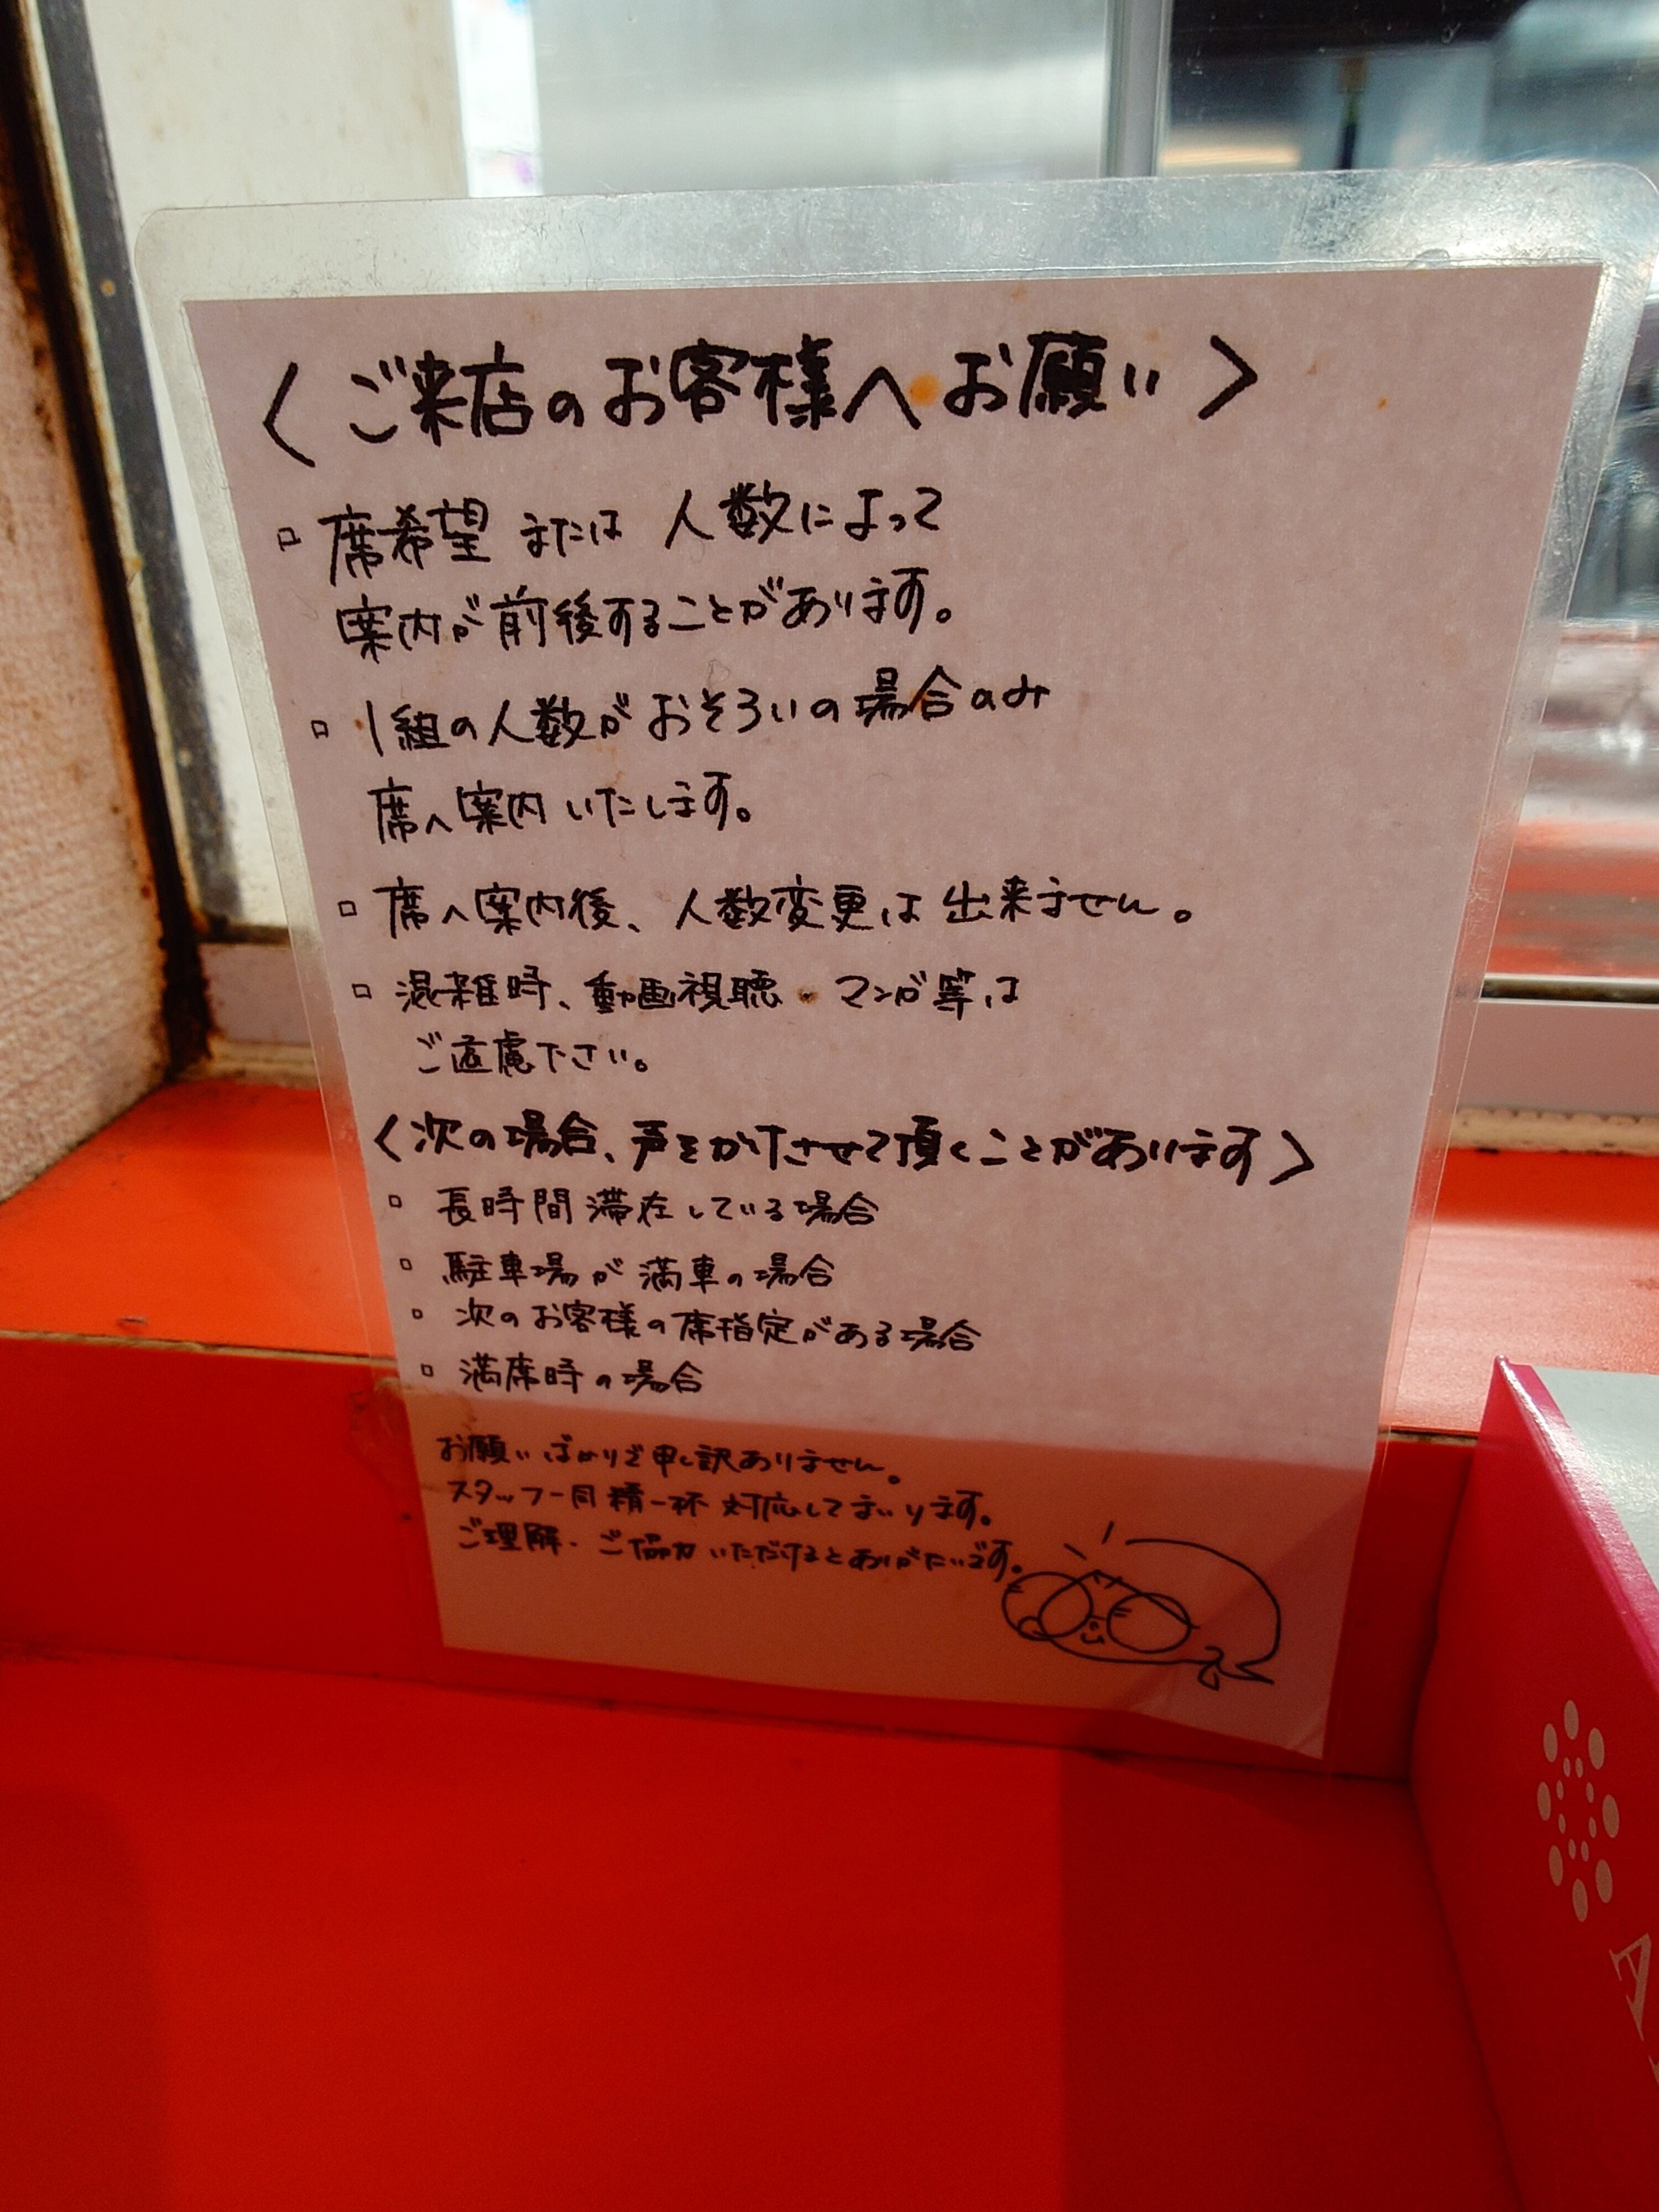 〈ご来店のお客様へお願い〉
▫ 席希望 または 人数によって
案内が前後することがあります。
▫ 1組の人数がおそろいの場合のみ
席へ案内いたします。
▫ 席へ案内後、人数変更は出来ません。
▫ 混雑時、動画視聴・マンガ等は
ご遠慮下さい。
〈次の場合、声をかけさせて頂くことがあります〉
▫ 長時間滞在している場合
▫ 駐車場が満車の場合
▫ 次のお客様の席指定がある場合
▫ 満席時の場合
お願いばかりで申し訳ありません。
スタッフ一同精一杯 対応してまいります。
ご理解・ご協力いただけるとありがたいです。
A